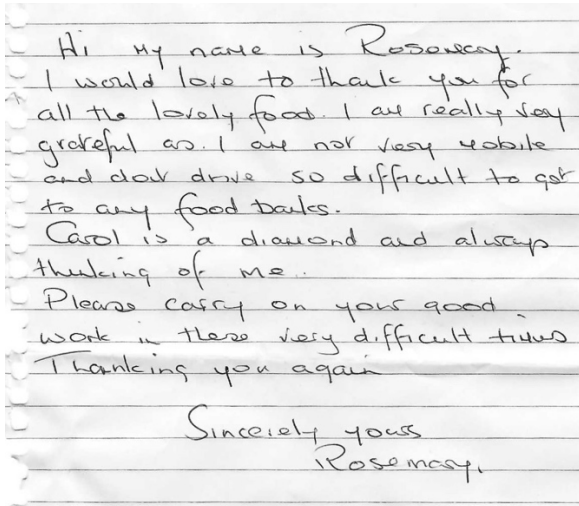 Hi My name is Rosemary.
I would love to thank you for
all the lovely food. I am really very
grateful as. I am not very mobile
and dont drive so difficult to get
to any food banks.
Carol is a diamond and always
thinking of me.
Please carry on your good
work in these very difficult times
Thanking you again
Sincerely yours
Rosemary.